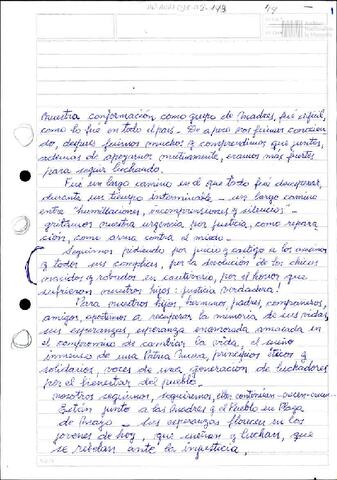 44
Nuestra conformación como grupo de Madres, fué difícil,
como lo fue en todo el país. De a poco nos fuimos conocien
do, después fuimos muchas y comprendimos que juntas,
además de apoyarnos mutuamente, eramos mas fuertes
para seguir luchando.
Fué un largo camino en el que todo fué desesperar,
durante un tiempo interminable - un largo camino
entre "humillaciones, incomprensiones y silencios" -
gritamos nuestra urgencia por justicia, como repara
ción, como arma contra el miedo.
Seguimos pidiendo por juicio y castigo a los asesinos
y todos sus cómplices, por la devolución de los chicos
nacidos y robados en cautiverio, por el horror que
sufrieron nuestros hijos: justicia verdadera!
Para nuestros hijos, hermanos, padres, compañeros,
amigos, apostamos a recuperar la memoria de sus vidas,
sus esperanzas, esperanza enamorada amasada en
el compromiso de cambiar la vida, el sueño
inmenso de una Patria Nueva, principios éticos y
solidarios, voces de una generación de luchadores
por el bienestar del pueblo.
Nosotras seguimos, seguiremos, ellos continúan
Están junto a las Madres y el Pueblo en Plaza
de Mayo - Sus esperanzas florecen en los
jóvenes de hoy, que sueñan y luchan, que
se rebelan ante la injusticia,